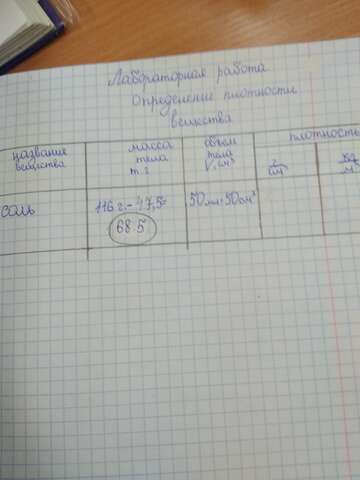 Лабораторная работа
Определение плотности
вещества
название вещества
масса тела m. г
объем тела V, см³
плотность
г/см³
кг/м³
соль
116 г. - 47,5=
68.5
50мл=50см³